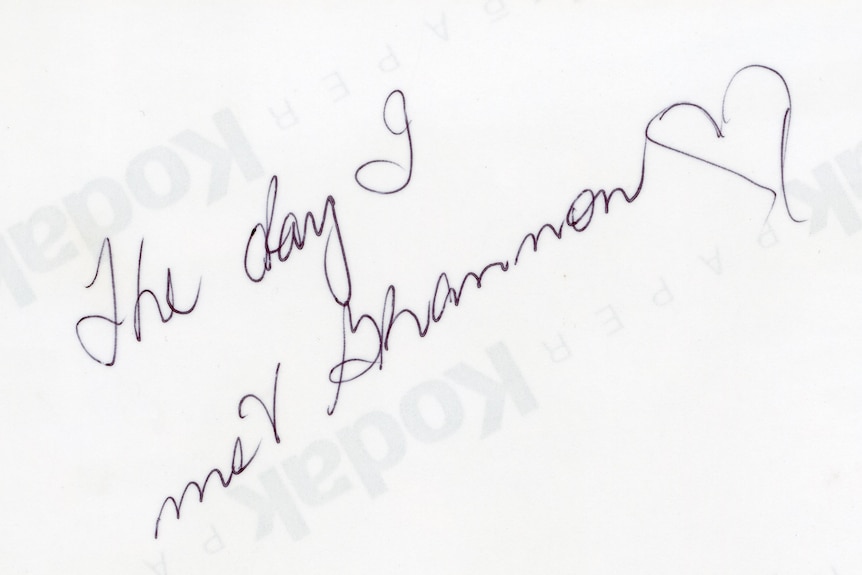 The day I
met Shannon ♡
Kodak PAPER
Kodak PAPER
Kodak